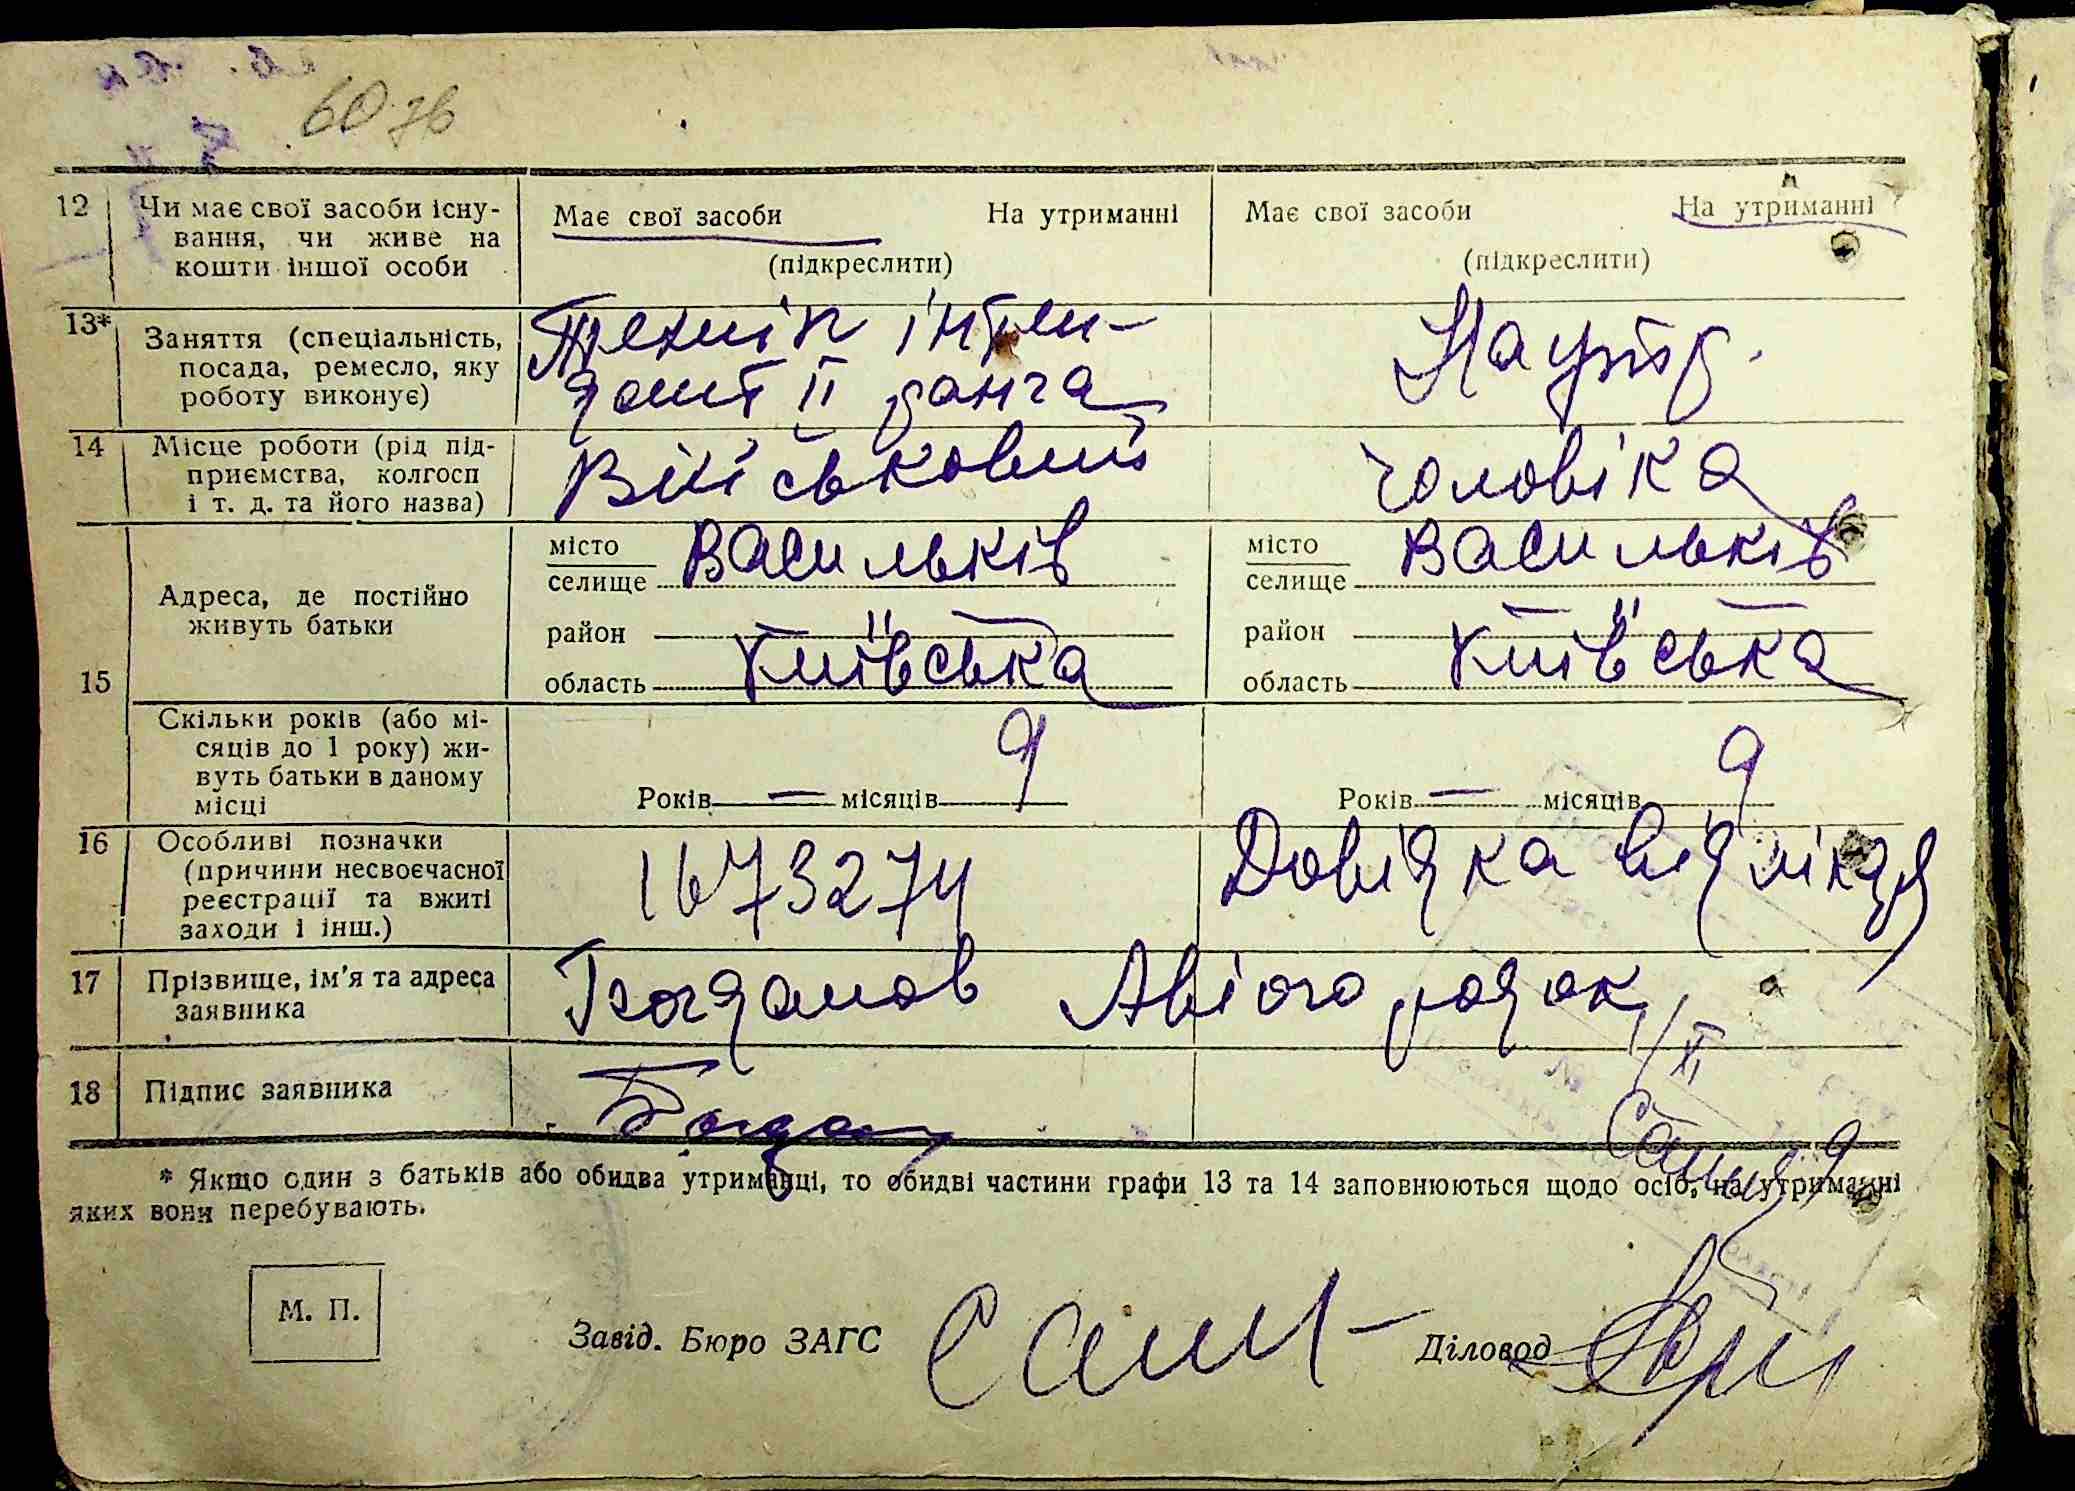 60 зв
12 Чи має свої засоби існу-
вання, чи живе на
кошти іншої особи
Має свої засоби На утриманні
(підкреслити)
Має свої засоби На утриманні
(підкреслити)
13* Заняття (спеціальність,
посада, ремесло, яку
роботу виконує)
Технік інтен-
дант II ранга
На утр.
14 Місце роботи (рід під-
приємства, колгосп
і т. д. та його назва)
Військовий
чоловіка
15
Адреса, де постійно
живуть батьки
місто
селище Васильків
район
область Київська
місто
селище Васильків
район
область Київська
Скільки років (або мі-
сяців до 1 року) жи-
вуть батьки в даному
місці
Років — місяців 9
Років — місяців 9
16 Особливі позначки
(причини несвоєчасної
реєстрації та вжиті
заходи і інш.)
1673274
Довідка від лікаря
17 Прізвище, ім'я та адреса
заявника
Богданов Авіогородок
18 Підпис заявника
* Якщо один з батьків або обидва утриманці, то обидві частини графи 13 та 14 заповнюються щодо осіб, на утриманні
яких вони перебувають.
М. П.
Завід. Бюро ЗАГС
Діловод